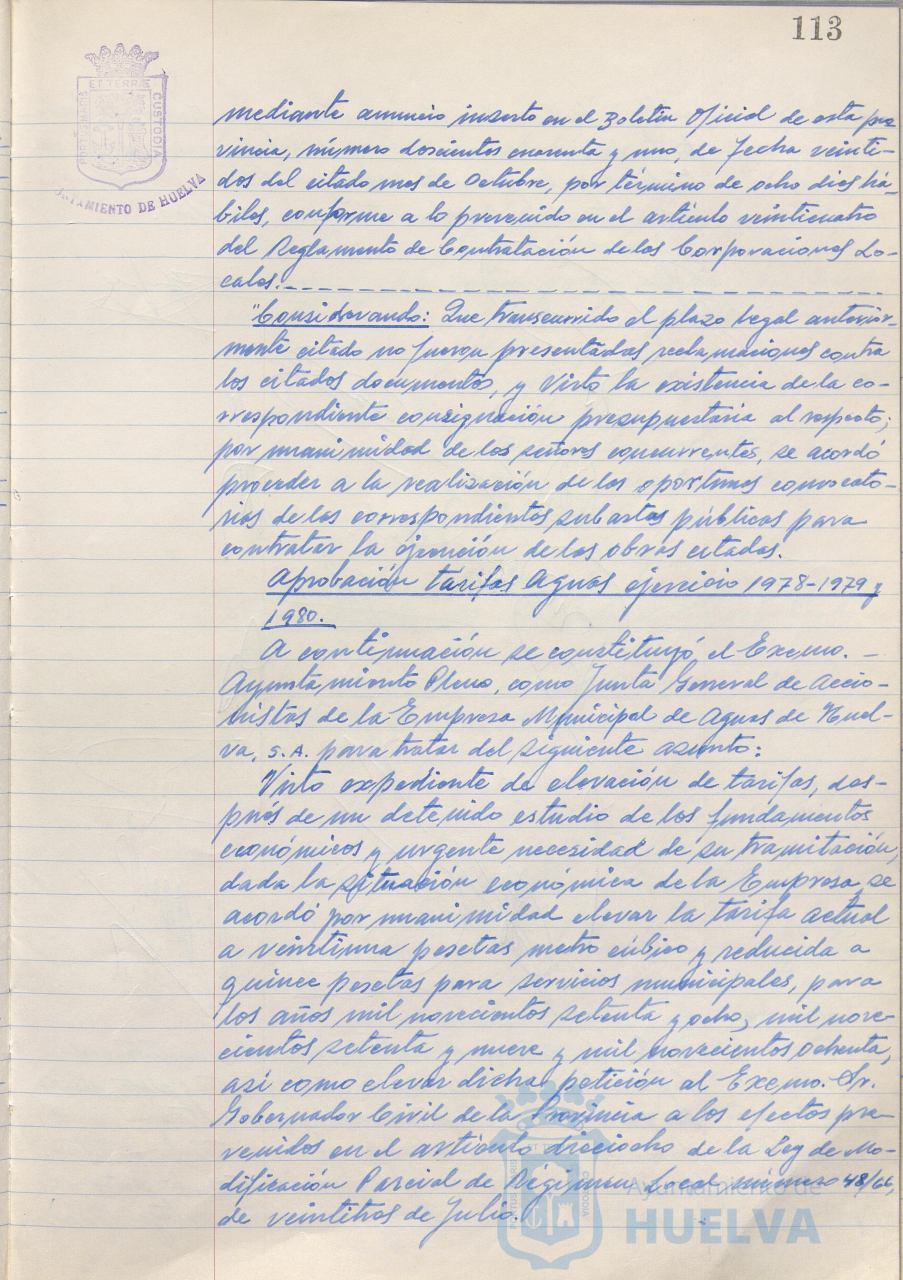 113
ET TERRAE
CUSTODIA
AYUNTAMIENTO DE HUELVA
mediante anuncio inserto en el Boletín Oficial de esta pro
vincia, número doscientos cuarenta y uno, de fecha veinti-
dos del citado mes de Octubre, por término de ocho dias há-
biles, conforme a lo prevenido en el artículo veinticuatro
del Reglamento de Contratación de las Corporaciones Lo-
cales.
"Considerando: Que transcurrido el plazo legal anterior-
mente citado no fueron presentadas reclamaciones contra
los citados documentos, y visto la existencia de la co-
rrespondiente consignación presupuestaria al respecto;
por unanimidad de los señores concurrentes, se acordó
proceder a la realización de las oportunas convocato-
rias de las correspondientes subastas públicas para
contratar la ejecución de las obras citadas.
Aprobación tarifas Aguas ejercicio 1978-1979 y
1980.
A continuación se constituyó el Excmo. -
Ayuntamiento Pleno, como Junta General de Accio-
nistas de la Empresa Municipal de Aguas de Huel-
va, S.A. para tratar del siguiente asunto:
Visto expediente de elevación de tarifas, des-
pués de un detenido estudio de los fundamentos
económicos y urgente necesidad de su tramitación,
dada la situación económica de la Empresa, se
acordó por unanimidad elevar la tarifa actual
a veintiuna pesetas metro cúbico y reducida a
quince pesetas para servicios municipales, para
los años mil novecientos setenta y ocho, mil nove-
cientos setenta y nueve y mil novecientos ochenta,
así como elevar dicha petición al Excmo. Sr.
Gobernador Civil de la Provincia a los efectos pre-
venidos en el artículo dieciocho de la Ley de Mo-
dificación Parcial de Régimen Local número 48/66,
de veintitrés de Julio.
Ayuntamiento de
HUELVA